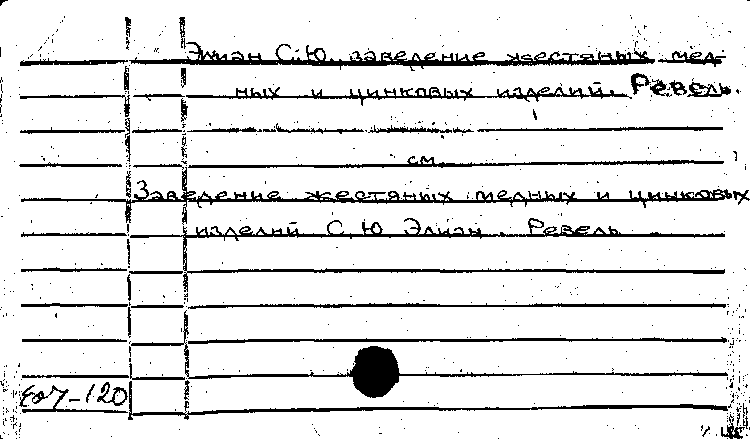 Элиан С.Ю., заведение жестяных мед-
ных и цинковых изделий. Ревель.
см.
Заведение жестяных медных и цинковых
изделий С.Ю. Элиан. Ревель
Ео7-120